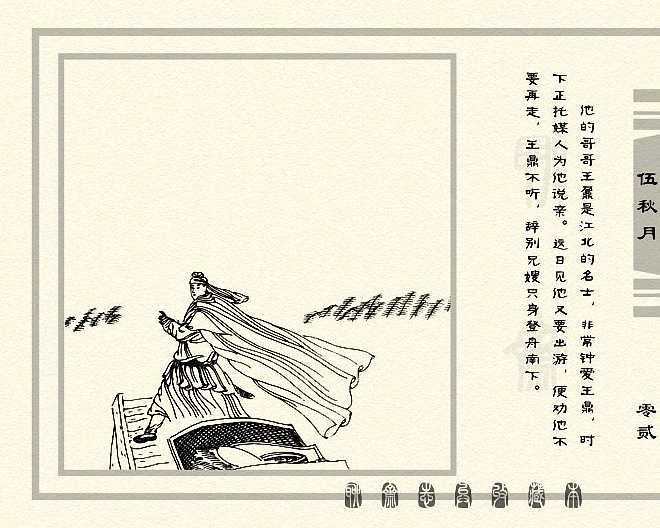 他的哥哥王鼐是江北的名士，非常钟爱王鼎，时
下正托媒人为他说亲。这日见他又要出游，便劝他不
要再走，王鼎不听，辞别兄嫂只身登舟南下。
伍秋月
零贰